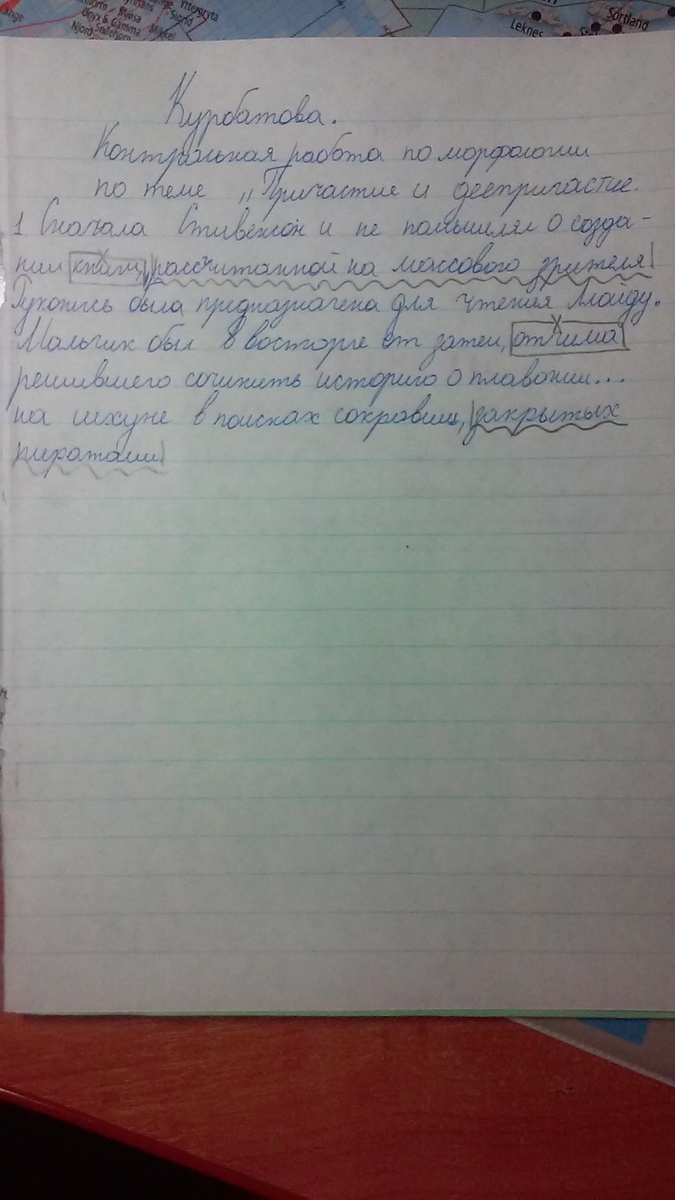 Ytterøyta
Sigrid
Mikkel
Snøhorn
Leknes
Sortland
Курбатова.
Контрольная работа по морфологии
по теме „Причастие и деепричастие.
1 Сначала Стивенсон и не помышлял о созда-
нии книги, рассчитанной на массового зрителя
Рукопись была предназначена для чтения Ллойду.
Мальчик был в восторге от затеи, отчима
решившего сочинить историю о плавании...
на шхуне в поисках сокровищ, закрытых
пиратами